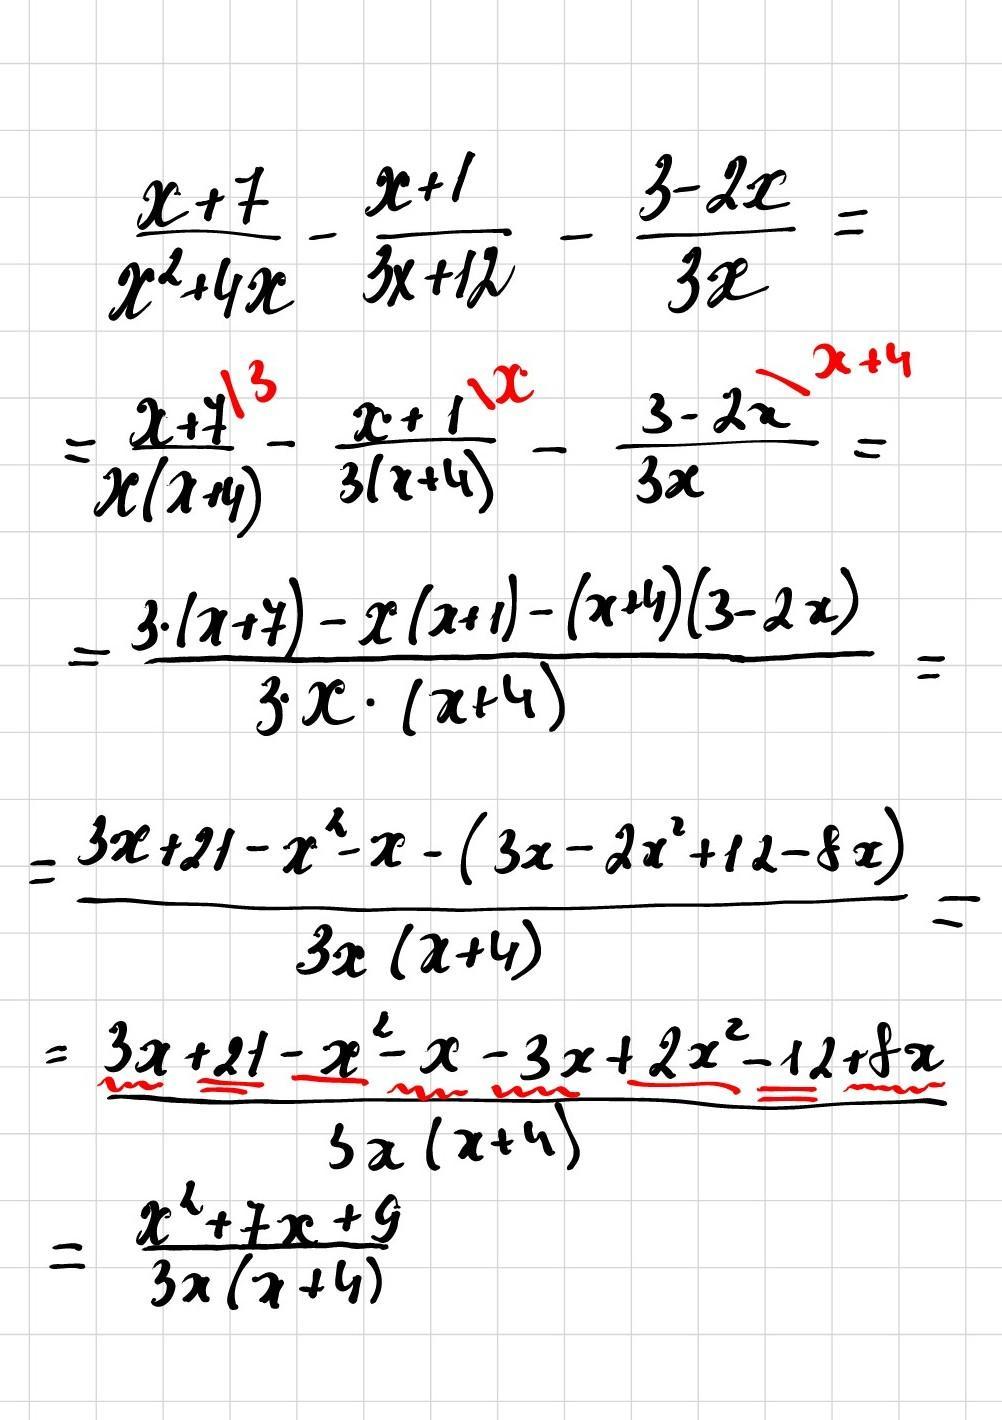 (x+7)/(x²+4x) - (x+1)/(3x+12) - (3-2x)/(3x) =
= (x+7)\3/(x(x+4)) - (x+1)\x/(3(x+4)) - (3-2x)\x+4/(3x) =
= (3·(x+7) - x(x+1) - (x+4)(3-2x))/(3·x·(x+4)) =
= (3x+21-x²-x-(3x-2x²+12-8x))/(3x(x+4)) =
= (3x+21-x²-x-3x+2x²-12+8x)/(3x(x+4))
= (x²+7x+9)/(3x(x+4))